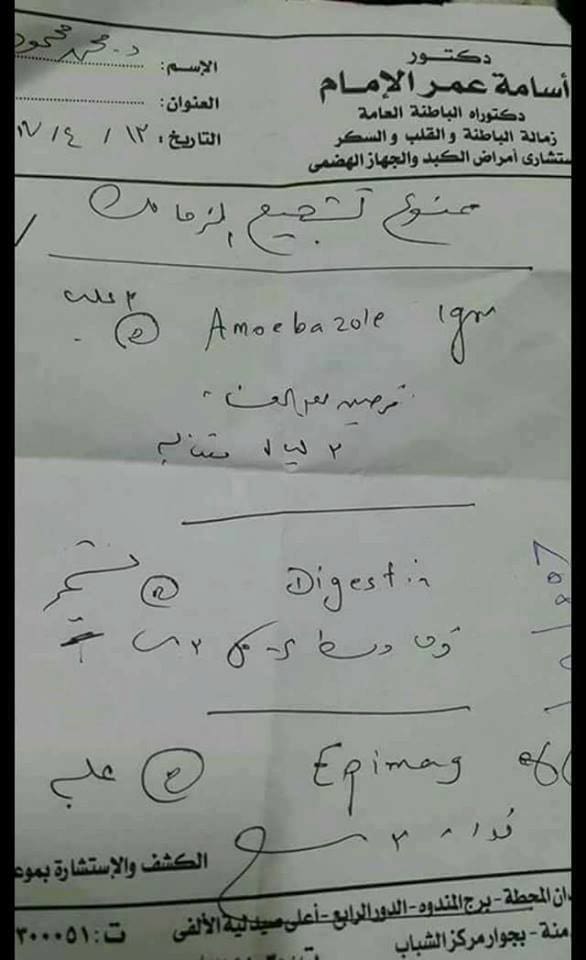 دكتور
أسامة عمر الإمام
دكتوراه الباطنة العامة
زمالة الباطنة و القلب و السكر
ستشارى أمراض الكبد والجهاز الهضمى
الإسم: د. محمد محمود
العنوان:
التاريخ: ١٣ / ٤ /
ممنوع تشجيع الزمالك
Amoebazole 1gm
٢ علب
قرصين بعد العشاء
٢ ليال متتاليه
Digestin
يستمر
قرص وسط كل
Epimag eff
علبه
فوار ٣
الكشف والإستشارة بموع
دان المحطة - برج المندوه - الدور الرابع - أعلى صيدلية الألفى
منة - بجوار مركز الشباب
ت: ٣٠٠٠٥١